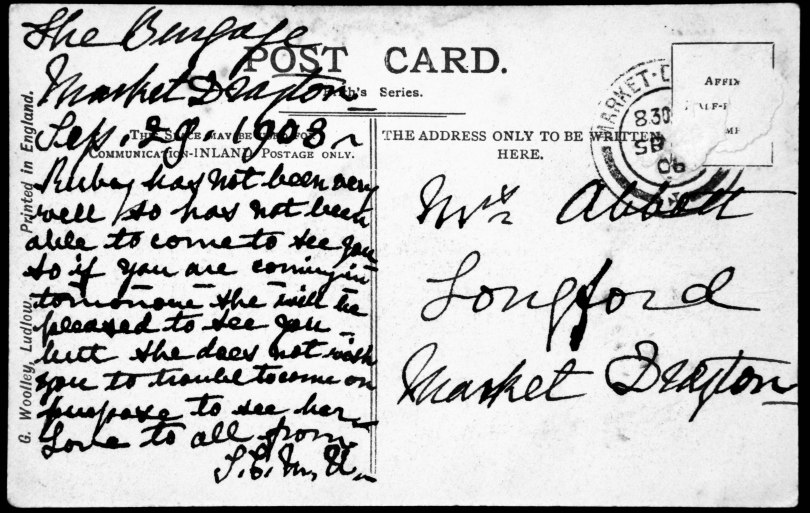 The Burgage
Market Drayton
Sep. 29. 1908
Ruby has not been very
well so has not been
able to come to see you
so if you are coming in
tomorrow she will be
pleased to see you
but she does not wish
you to trouble to come on
purpose to see her
Love to all from
POST CARD.
Series.
THE SPACE MAY BE
COMMUNICATION-INLAND POSTAGE ONLY.
THE ADDRESS ONLY TO BE WRITTEN
HERE.
MARKET-D
8 30
SP
AFFIX
HALF-P
MP
Mrs Abbott
Longford
Market Drayton
G. Woolley, Ludlow. Printed in England.